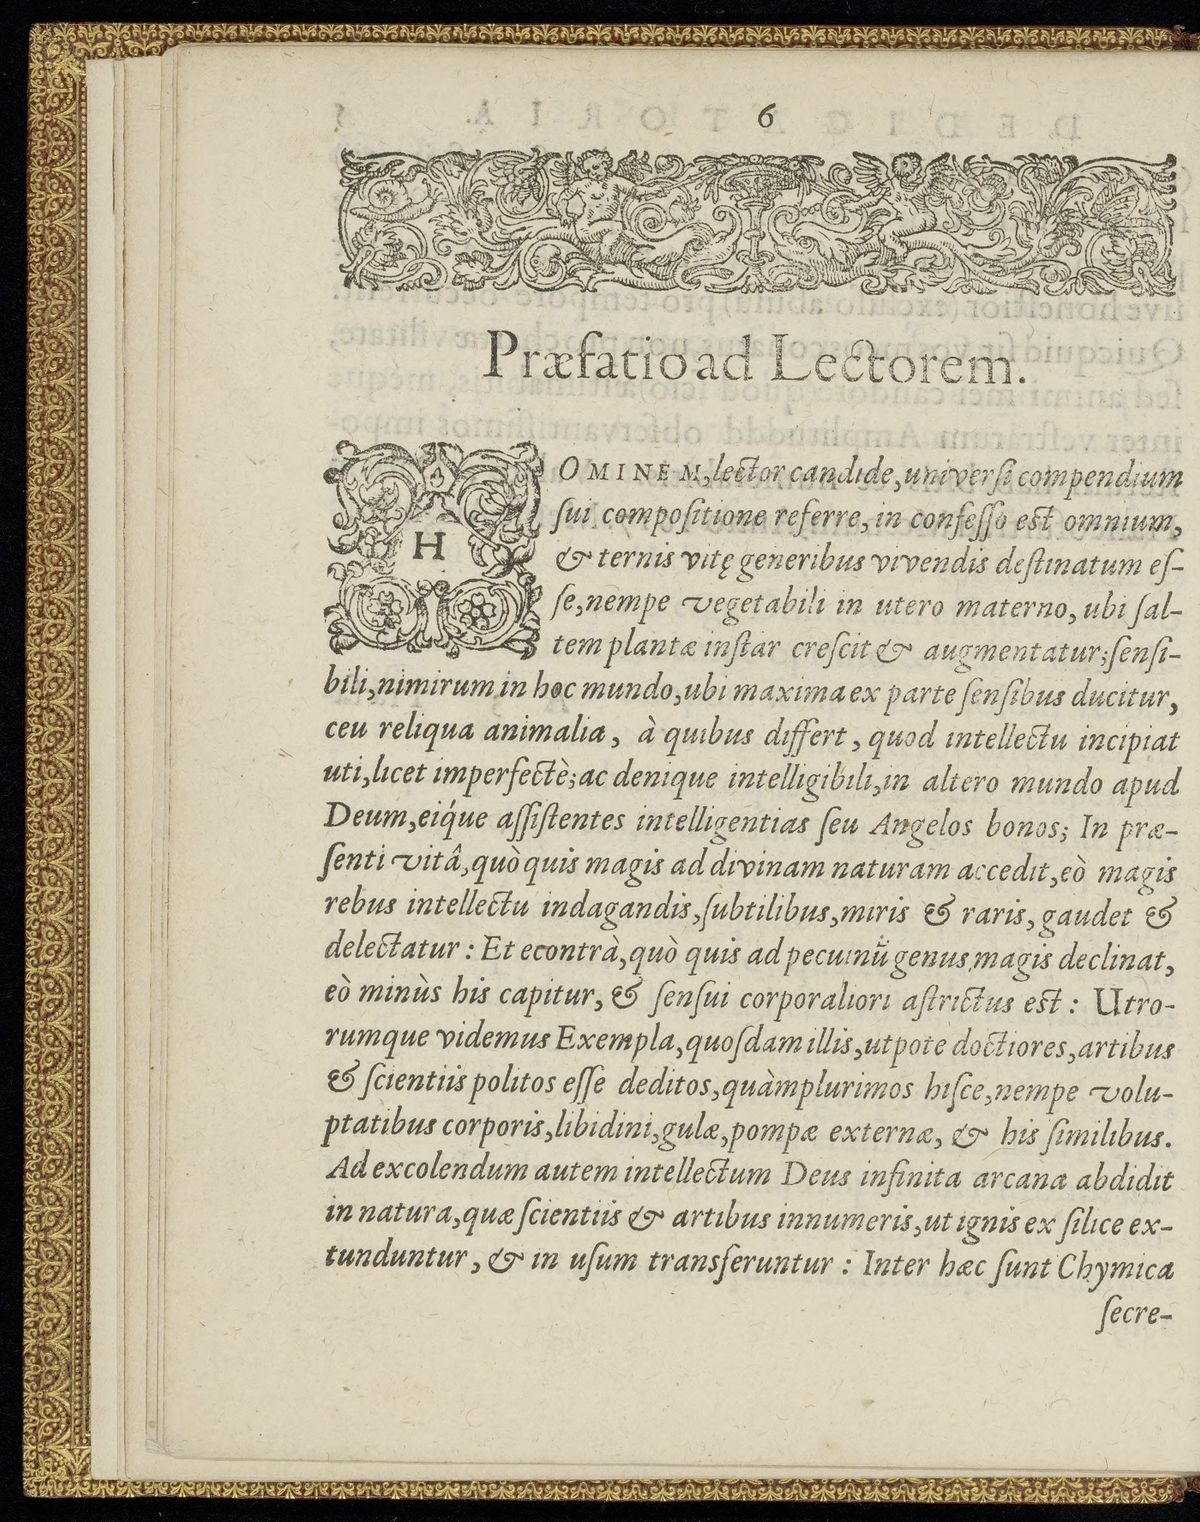 6
Præfatio ad Lectorem.
HOMINEM, lector candide, universi compendium
ſui compoſitione referre, in confeſſo est omnium,
& ternis vitę generibus vivendis deſtinatum eſ-
ſe, nempe vegetabili in utero materno, ubi ſal-
tem plantæ inſtar creſcit & augmentatur; ſenſi-
bili, nimirum in hoc mundo, ubi maxima ex parte ſenſibus ducitur,
ceu reliqua animalia, à quibus differt, quod intellectu incipiat
uti, licet imperfectè; ac denique intelligibili, in altero mundo apud
Deum, eiq́ue aſſiſtentes intelligentias ſeu Angelos bonos; In præ-
ſenti vitâ, quò quis magis ad divinam naturam accedit, eò magis
rebus intellectu indagandis, ſubtilibus, miris & raris, gaudet &
delectatur: Et econtrà, quò quis ad pecuinū genus magis declinat,
eò minùs his capitur, & ſenſui corporaliori aſtrictus est: Utro-
rumque videmus Exempla, quoſdam illis, utpote doctiores, artibus
& ſcientiis politos eſſe deditos, quàmplurimos hiſce, nempe volu-
ptatibus corporis, libidini, gulæ, pompæ externæ, & his ſimilibus.
Ad excolendum autem intellectum Deus infinita arcana abdidit
in natura, quæ ſcientiis & artibus innumeris, ut ignis ex ſilice ex-
tunduntur, & in uſum transferuntur: Inter hæc ſunt Chymica
ſecre-